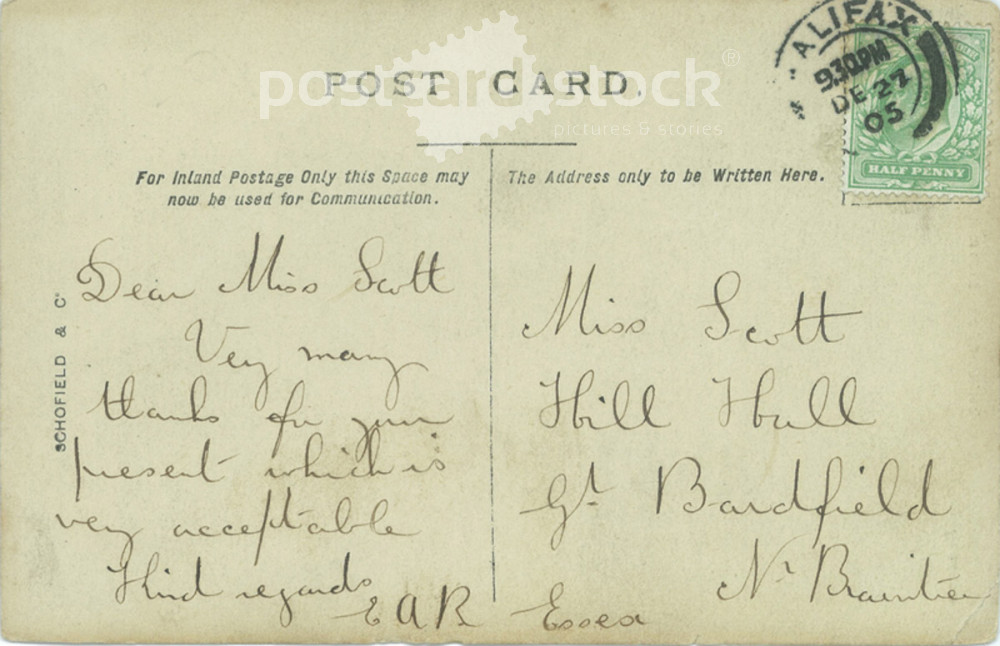 POST CARD.
postcard stock®
pictures & stories
HALIFAX
9.30PM
DE 27
05
HALF PENNY
For Inland Postage Only this Space may
now be used for Communication.
The Address only to be Written Here.
SCHOFIELD & Co
Dear Miss Scott
Very many
thanks for your
present which is
very acceptable
Kind regards
E A R
Miss Scott
Hill Hall
Gt Bardfield
Nr Braintree
Essex